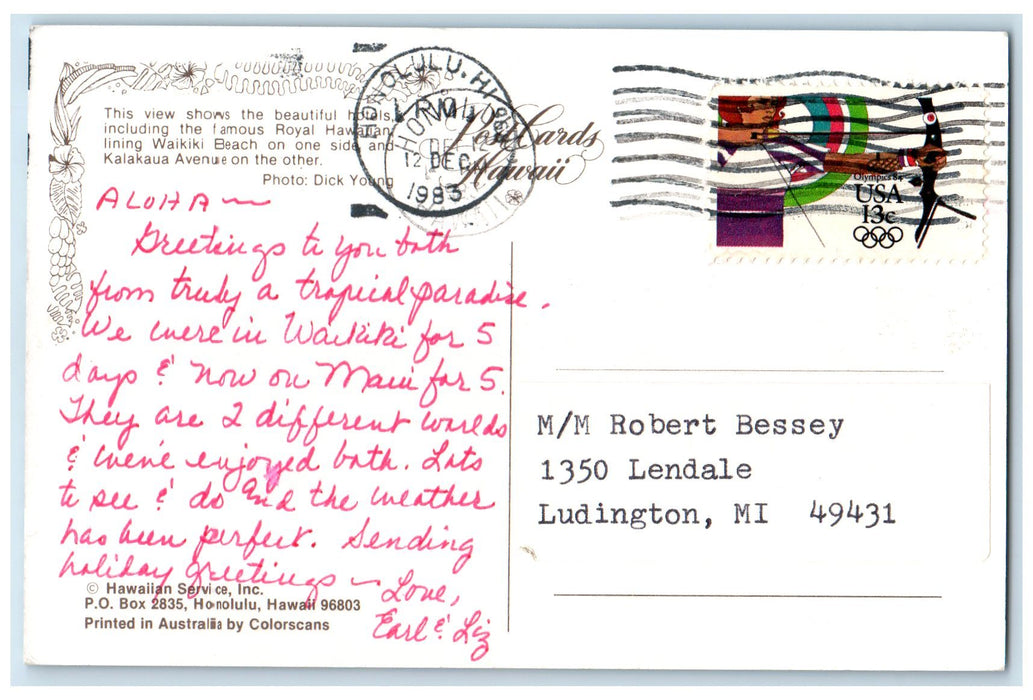 This view shows the beautiful hotels,
including the famous Royal Hawaiian
lining Waikiki Beach on one side and
Kalakaua Avenue on the other.
Photo: Dick Young
HONOLULU, HI
PM
12 DEC
1983
Post Cards
Hawaii
Olympics 84
USA
13c
ALOHA ~
Greetings to you both
from truly a tropical paradise.
We were in Waikiki for 5
days & now on Maui for 5.
They are 2 different worlds
& we've enjoyed both. Lots
to see & do and the weather
has been perfect. Sending
holiday greetings ~ Love,
Earl & Liz
© Hawaiian Service, Inc.
P.O. Box 2835, Honolulu, Hawaii 96803
Printed in Australia by Colorscans
M/M Robert Bessey
1350 Lendale
Ludington, MI 49431